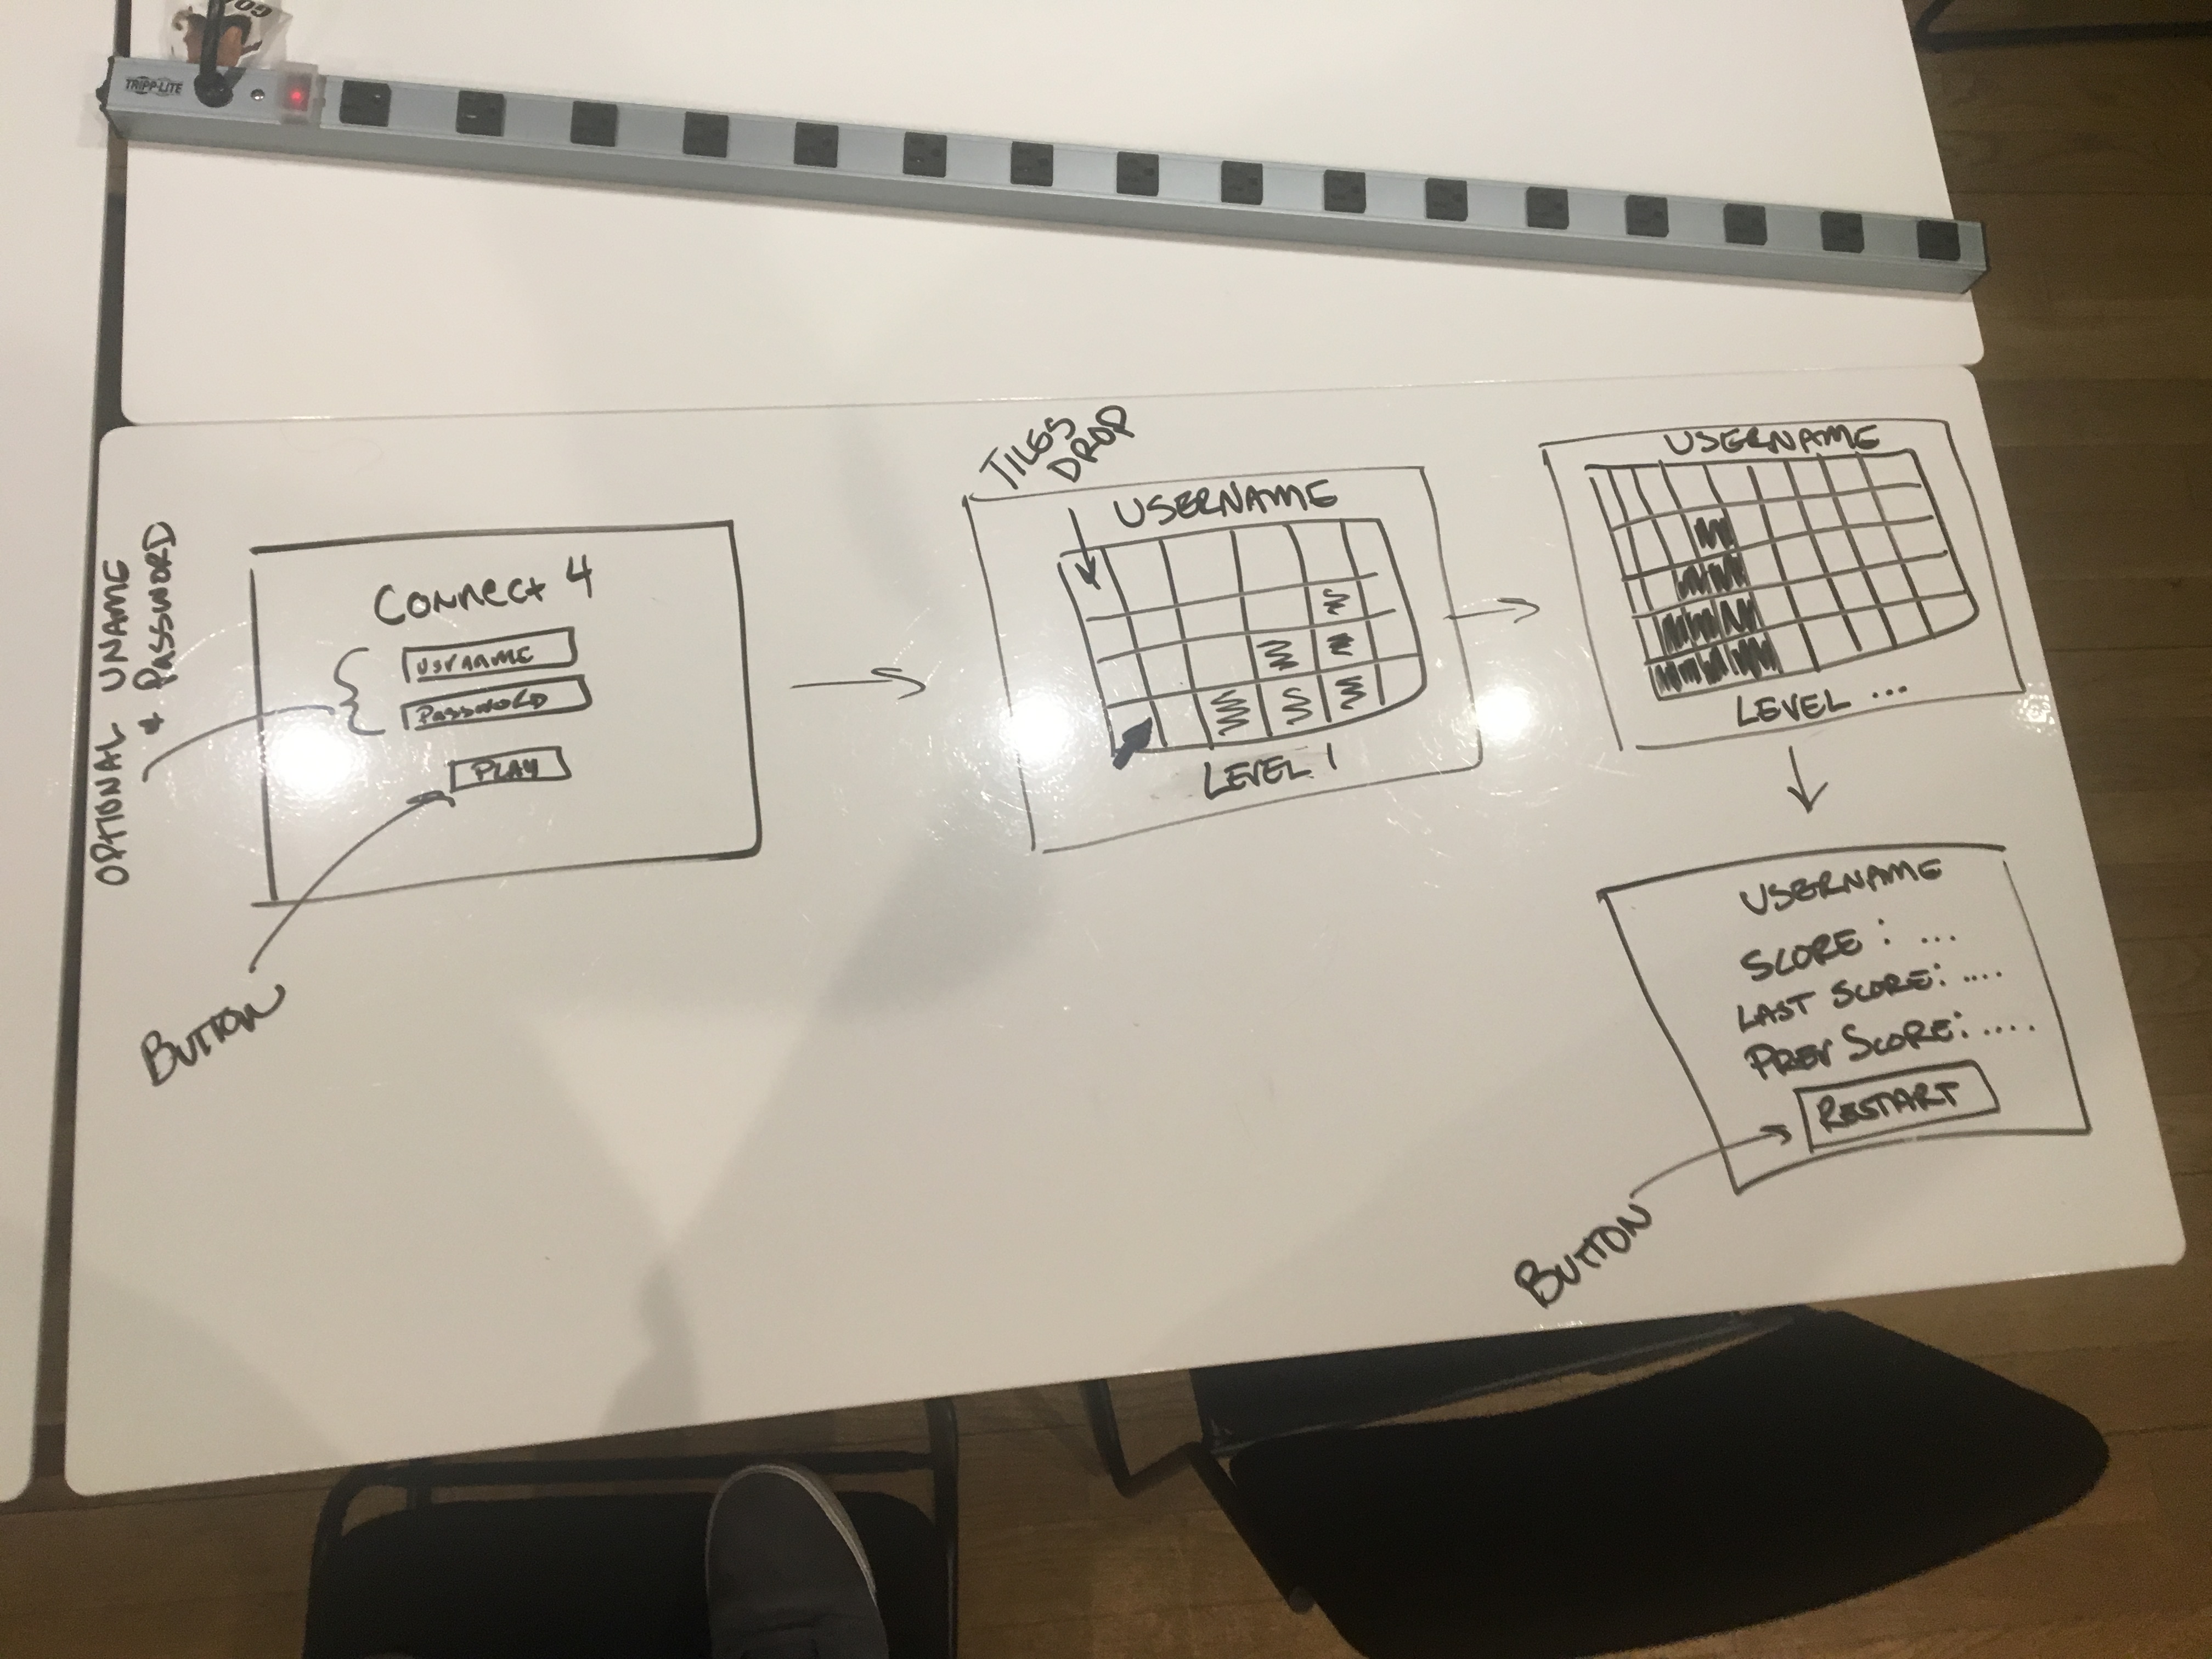 GO
TRIPP·LITE
OPTIONAL UNAME
& PASSWORD
CONNECT 4
USERNAME
PASSWORD
PLAY
BUTTON
TILES
DROP
USERNAME
LEVEL 1
USERNAME
LEVEL ...
USERNAME
SCORE: ...
LAST SCORE: ....
PREV SCORE: ....
RESTART
BUTTON